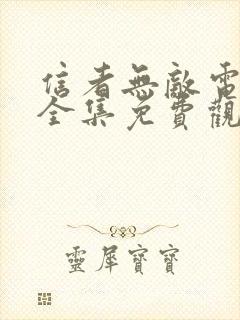 信者無敵電
全集免費觀
靈犀寶寶